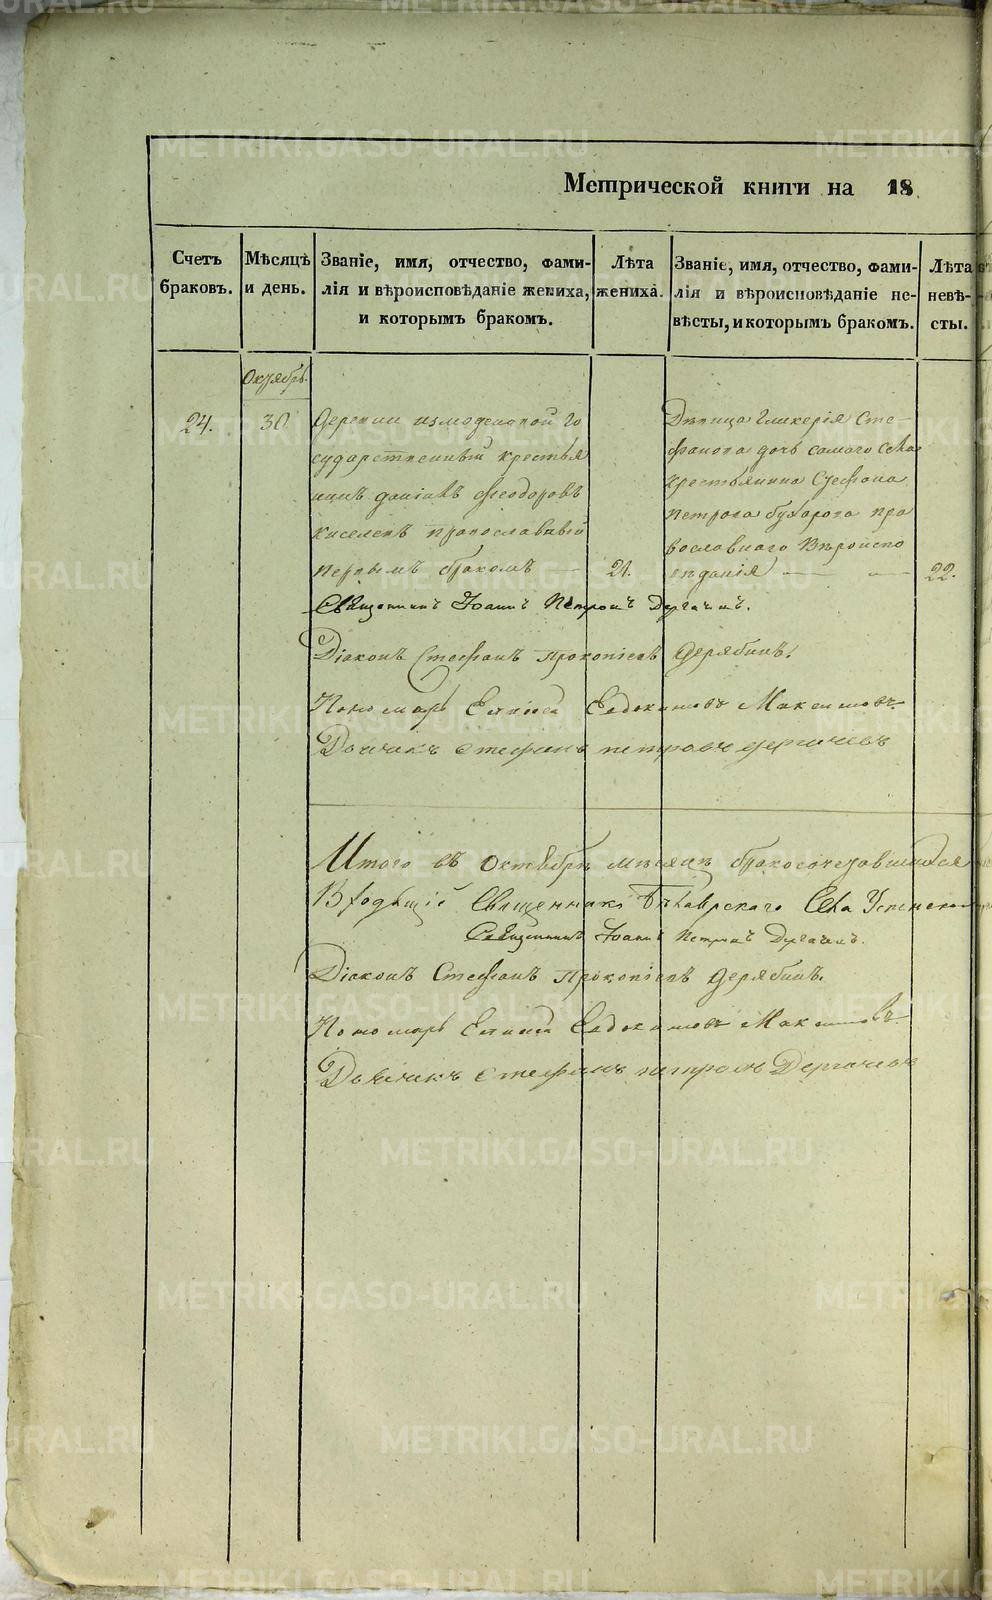 Метрической книги на 18
Счетъ браковъ.
Мѣсяцъ и день.
Званіе, имя, отчество, фами-
лія и вѣроисповѣданіе жениха,
и которымъ бракомъ.
Лѣта жениха.
Званіе, имя, отчество, фами-
лія и вѣроисповѣданіе не-
вѣсты, и которымъ бракомъ.
Лѣта невѣ-
сты.
Октябрь.
24.
30.
Деревни Измоденовой Го
сударственный крестья
нинъ Даніилъ Феодоровъ
Киселевъ православный
первымъ бракомъ —
21.
Дѣвица Гликерія Сте-
фанова дочь самаго села
крестьянина Стефана
Петрова Бухарова пра
вославнаго Вѣроиспо
вѣданія — —
22.
Священникъ Іоаннъ Петровъ Дергачевъ.
Діаконъ Стефанъ Прокопіевъ Дерябинъ.
Пономарь Елисей Евдокимовъ Максимовъ.
Дьячекъ Стефанъ Петровъ Дергачевъ
Итого въ Октябрѣ мѣсяцѣ бракосочетавшихся
Священникъ Села
Священникъ Іоаннъ Петровъ Дергачевъ.
Діаконъ Стефанъ Прокопіевъ Дерябинъ.
Пономарь Елисей Евдокимовъ Максимовъ.
Дьячекъ Стефанъ Петровъ Дергачевъ
METRIKI.GASO-URAL.RU